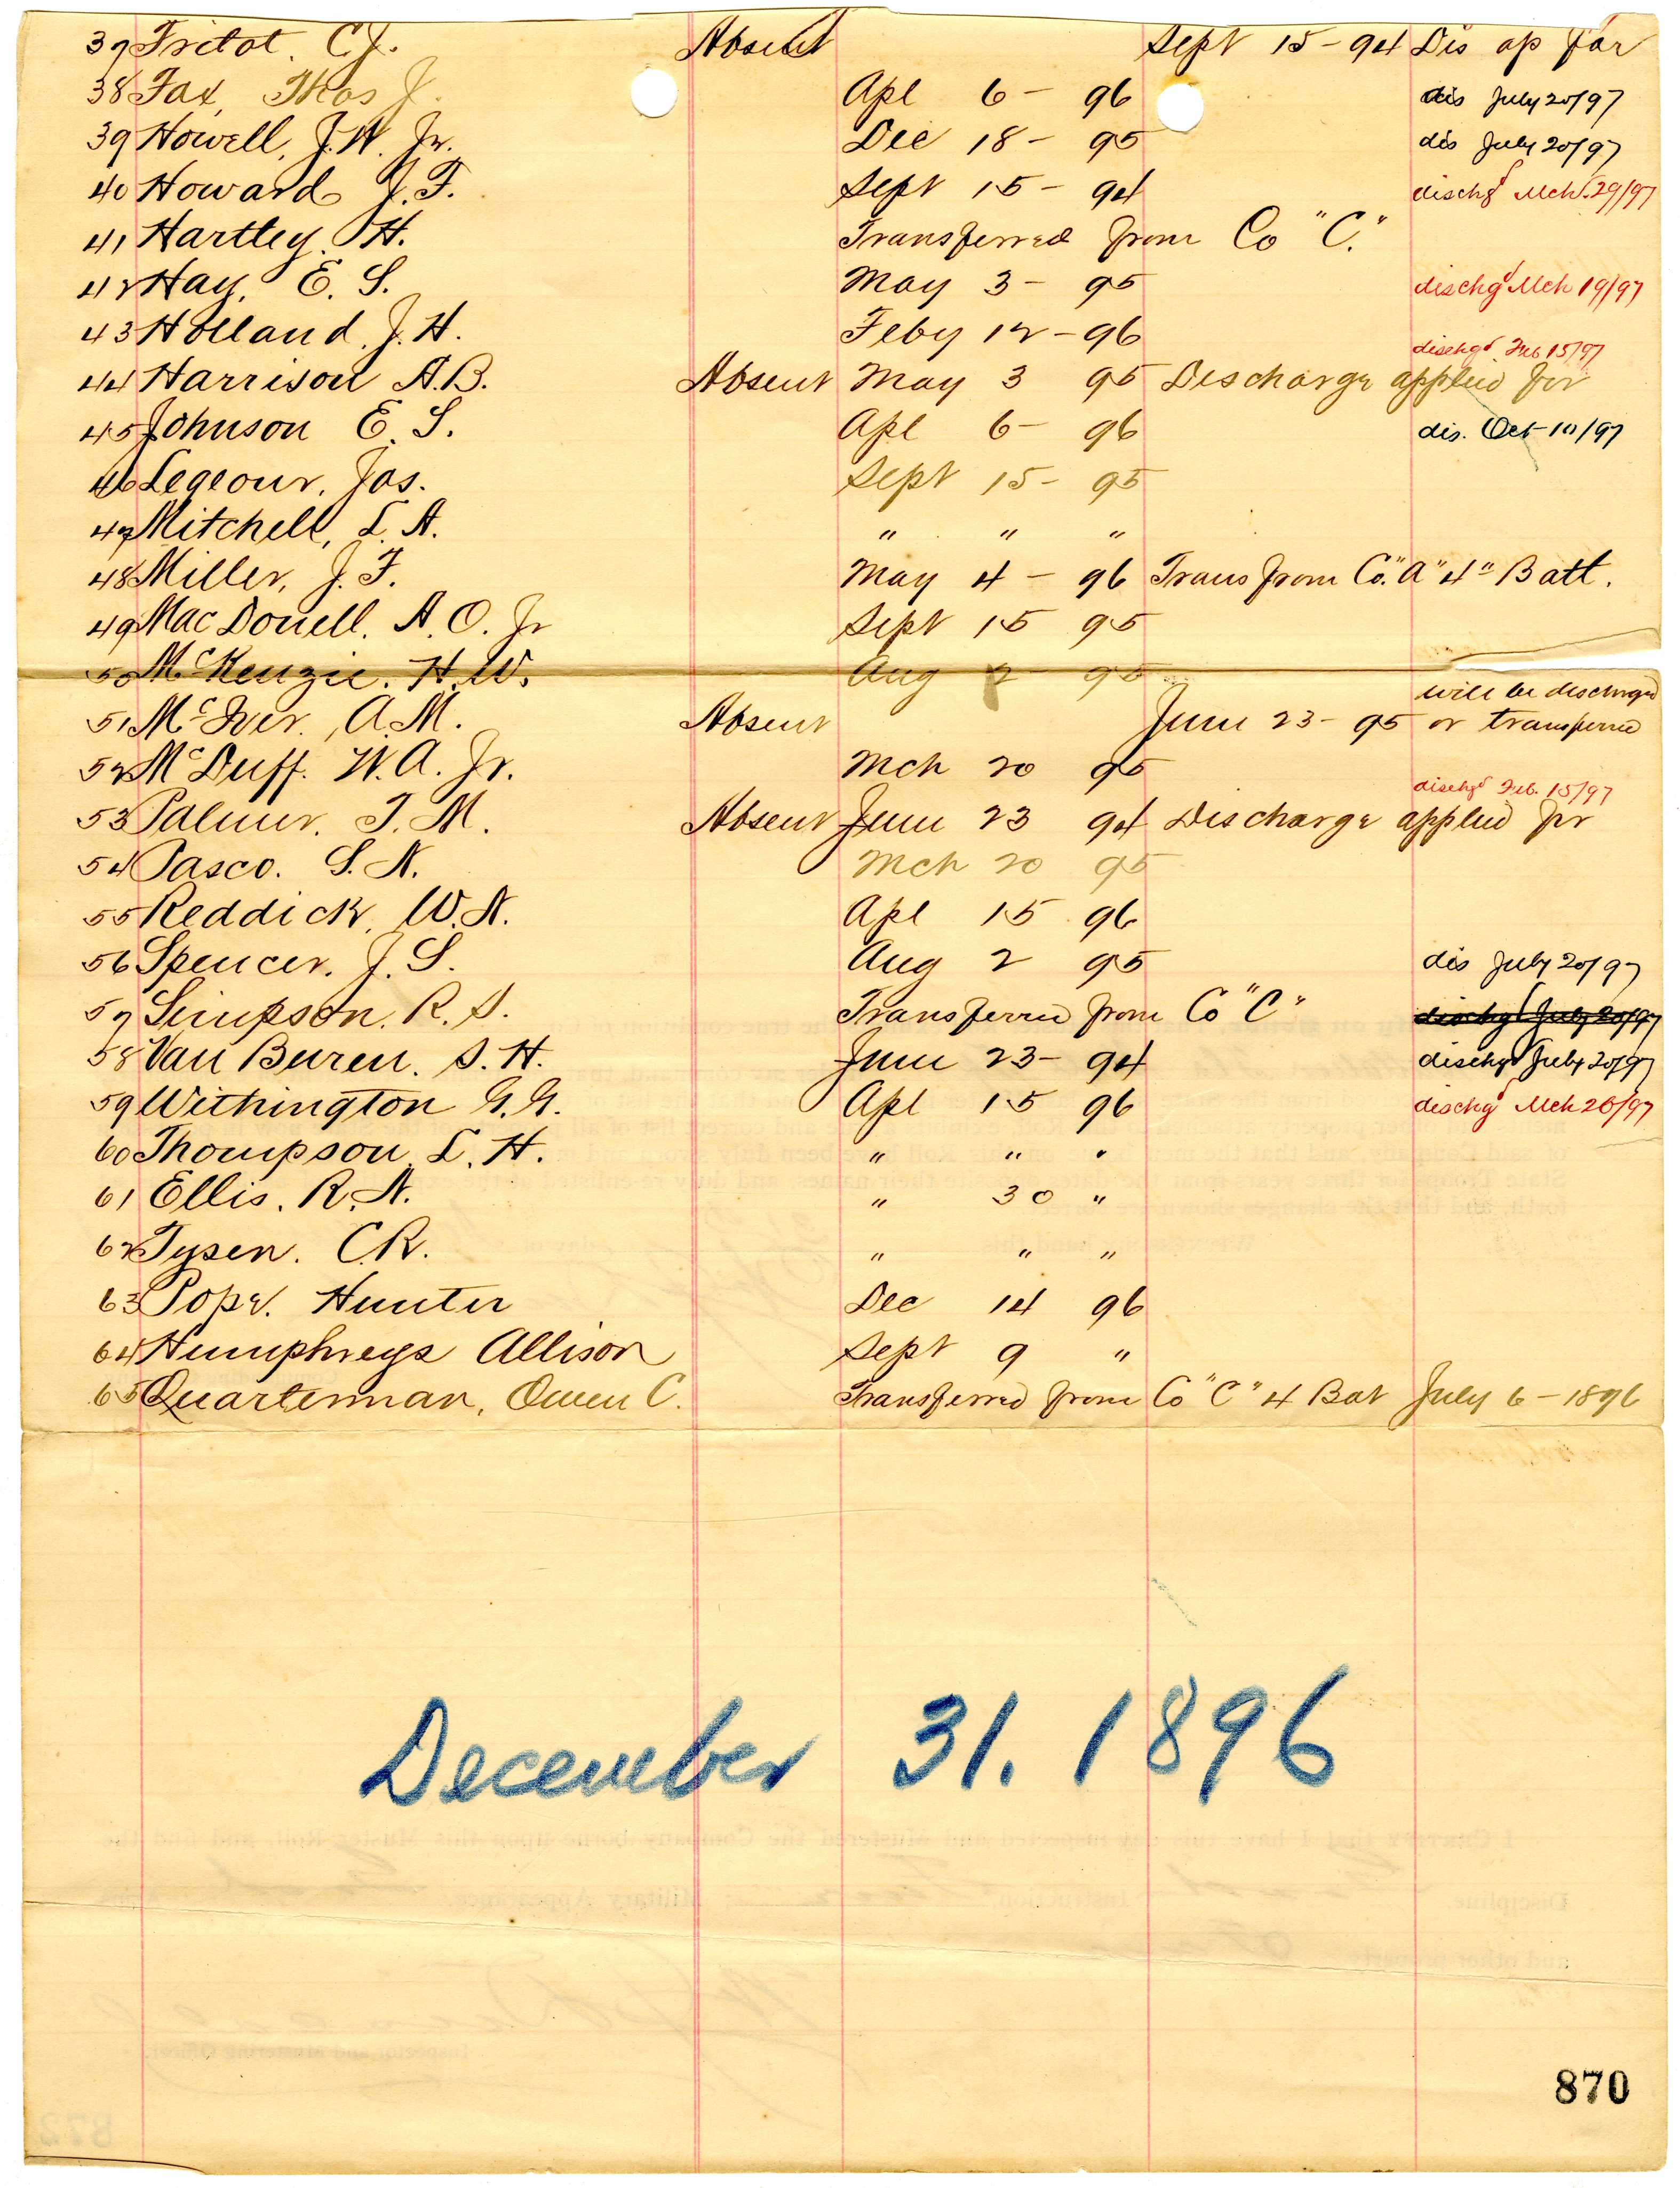 37 Fritot. C.J. Absent Sept 15-94 Dis ap for
38 Fax, Thos J. Apl 6- 96 dis July 20/97
39 Howell, J.W. Jr. Dec 18- 95 dis July 20/97
40 Howard J.F. Sept 15- 94 dischgd Mch. 29/97
41 Hartley, H. Transferred from Co "C."
42 Hay, E. S. May 3- 95 dischgd Mch 19/97
43 Holland, J.H. Feby 12-96
dischgd Feb 15/97
44 Harrison A.B. Absent May 3 95 Discharge applied for
45 Johnson E.S. Apl 6- 96 dis. Oct 10/97
46 Legeour, Jas. Sept 15- 95
47 Mitchell, L.A. " " "
48 Miller, J.F. May 4- 96 Trans from Co. "A" 4" Batt.
49 MacDonell. A.O. Jr Sept 15 95
50 McKenzie. H.W. Aug 2 95
will be discharged
51 McIver, A.M. Absent June 23- 95 or transferred
52 McDuff. W.A. Jr. Mch 20 95
dischgd Feb. 15/97
53 Palmer. T.M. Absent June 23 94 Discharge applied for
54 Pasco. S.N. Mch 20 95
55 Reddick, W.N. Apl 15 96
56 Spencer. J.S. Aug 2 95 dis July 20/97
57 Simpson. R.S. Transferred from Co "C" dischgd July 20/97
58 Van Buren. S.H. June 23- 94 dischgd July 20/97
59 Withington G.G. Apl 15 96 dischgd Mch 26/97
60 Thompson L.H. " " "
61 Ellis. R.N. " 30 "
62 Tysen. C.R. " " "
63 Pope. Hunter Dec 14 96
64 Humphreys Allison Sept 9 "
65 Quarterman, Owen C. Transferred from Co "C" 4 Bat July 6-1896
December 31. 1896
870